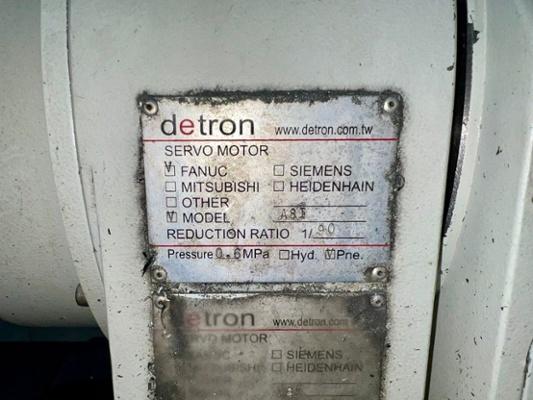 detron www.detron.com.tw
SERVO MOTOR
FANUC SIEMENS
MITSUBISHI HEIDENHAIN
OTHER
MODEL
REDUCTION RATIO 1/90
Pressure 0.6MPa Hyd. Pne.
detron www.detron.com
SERVO MOTOR
FANUC SIEMENS
HEIDENHAIN